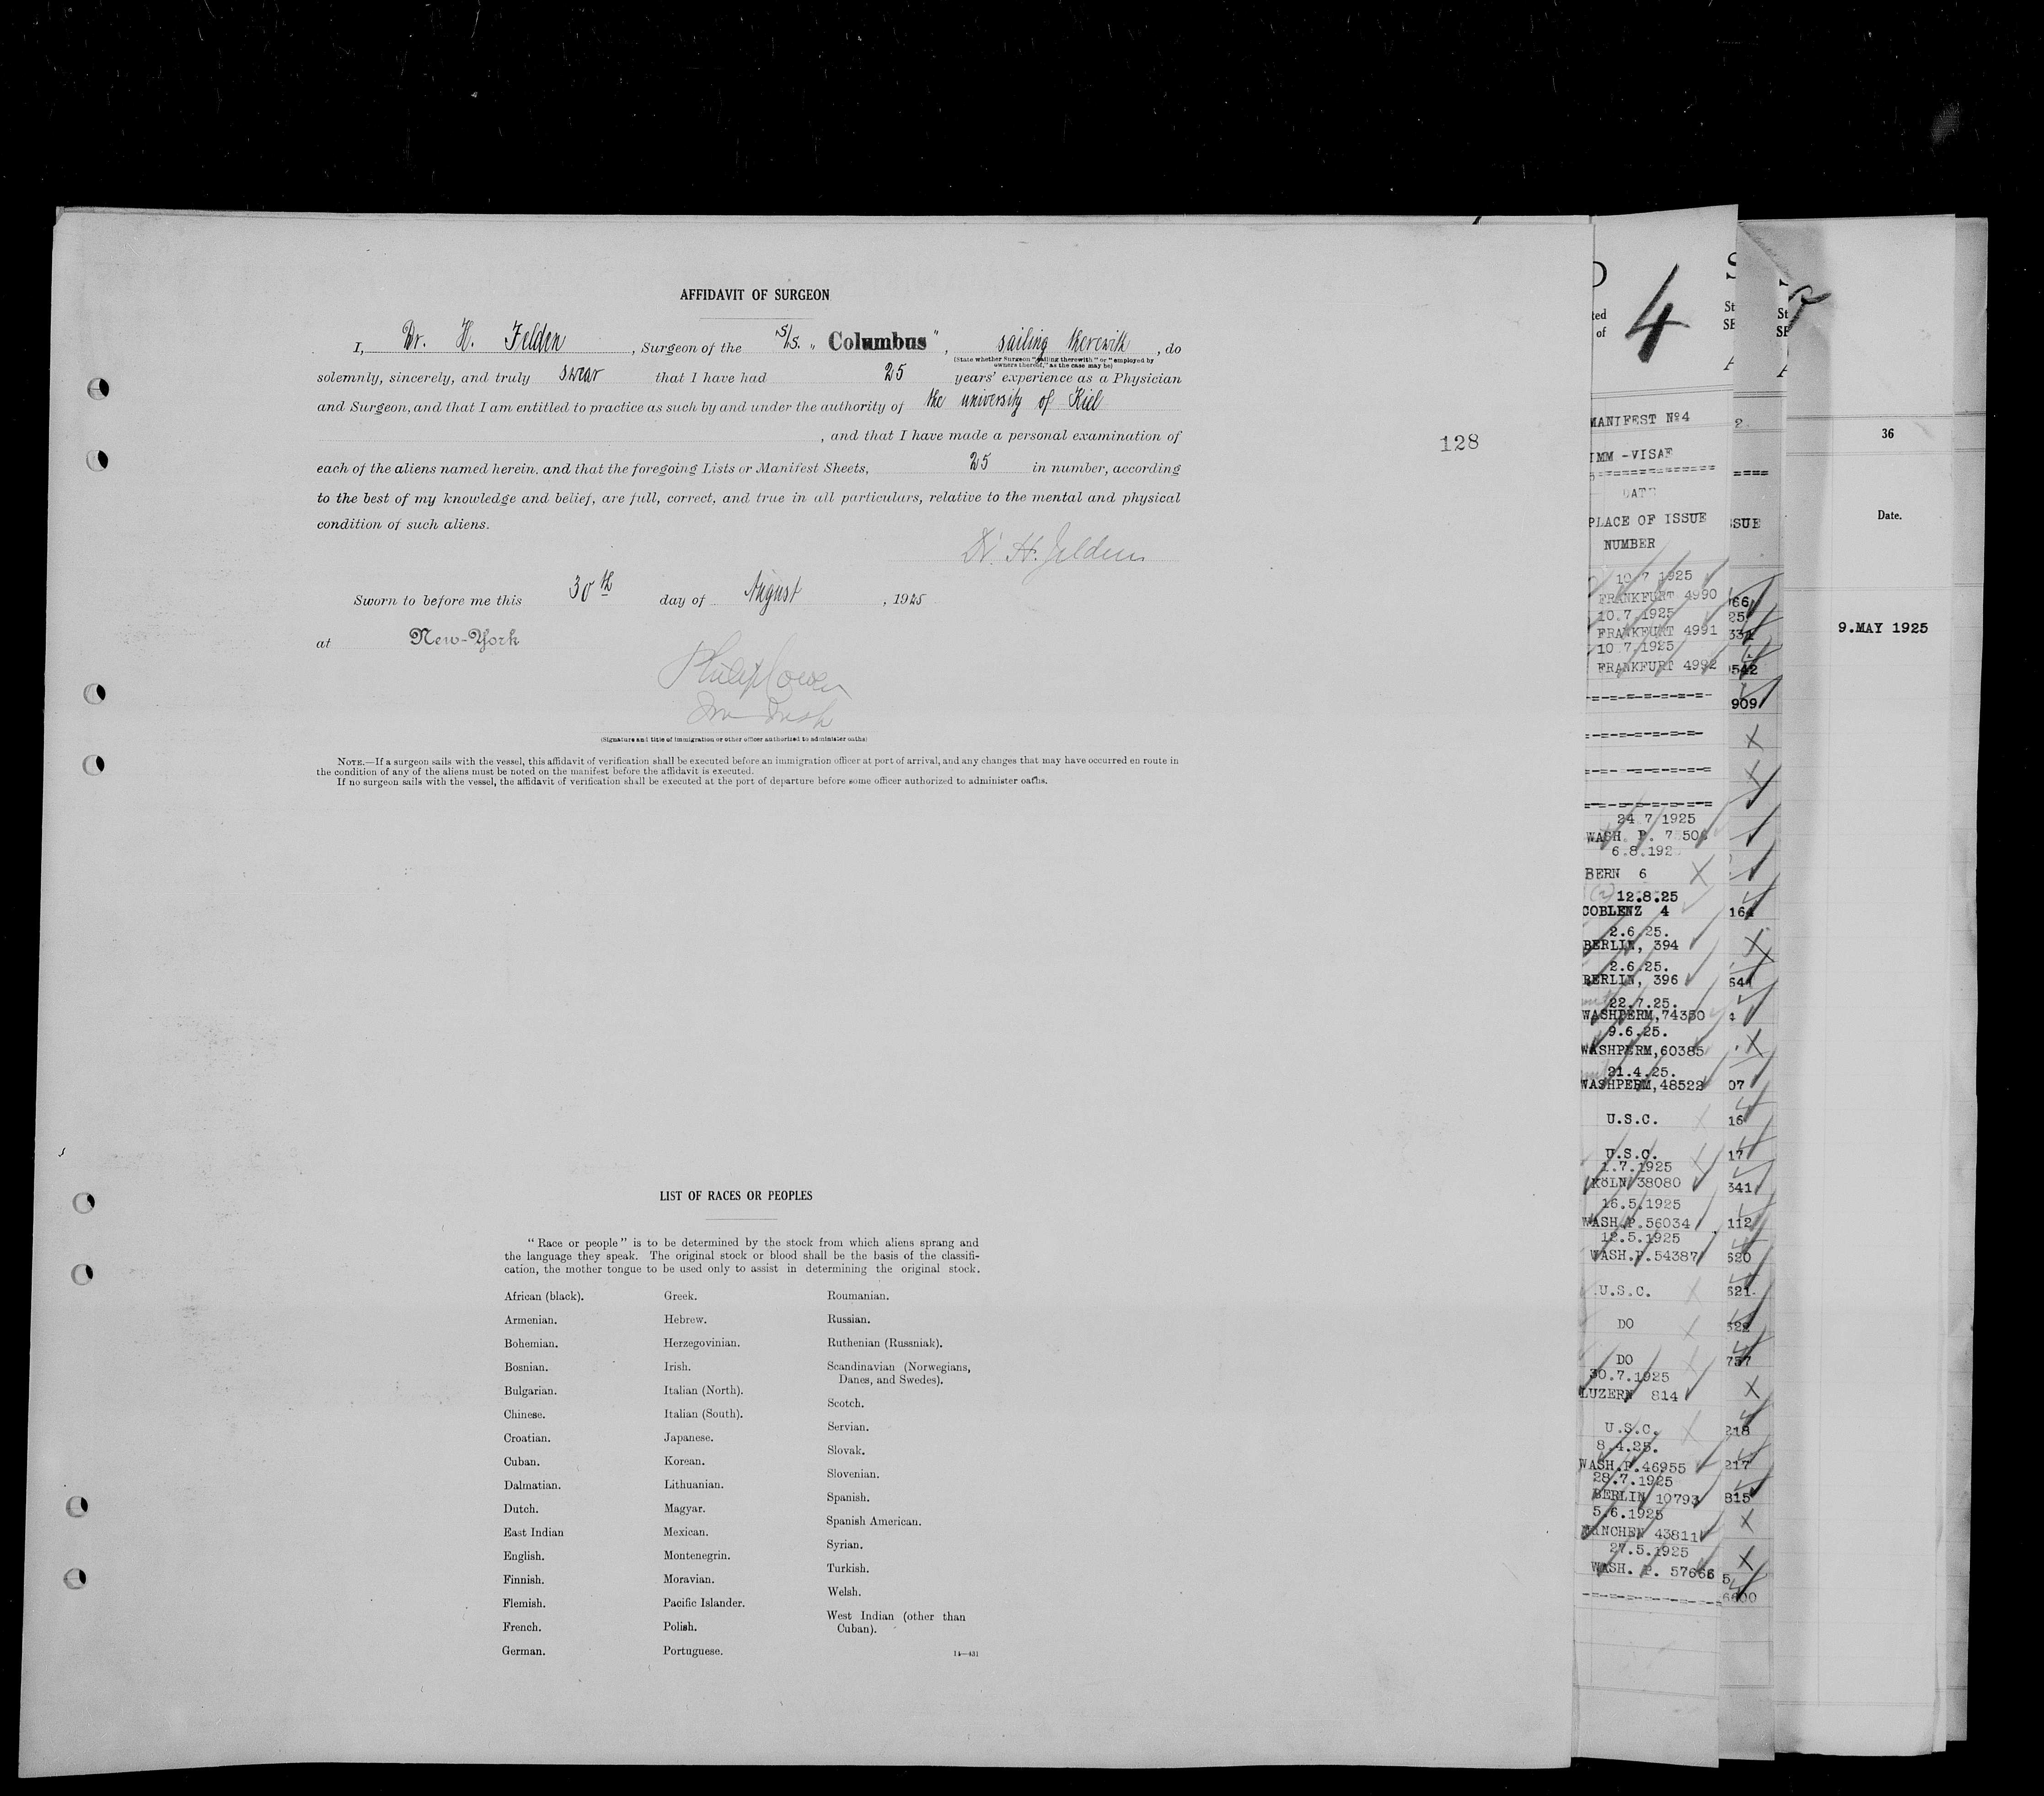 AFFIDAVIT OF SURGEON
I, Dr. H. Felden, Surgeon of the S/S. „Columbus", sailing therewith, do
(State whether Surgeon "sailing therewith" or "employed by
owners thereof," as the case may be)
solemnly, sincerely, and truly swear that I have had 25 years' experience as a Physician
and Surgeon, and that I am entitled to practice as such by and under the authority of the university of Kiel
, and that I have made a personal examination of
each of the aliens named herein, and that the foregoing Lists or Manifest Sheets, 25 in number, according
to the best of my knowledge and belief, are full, correct, and true in all particulars, relative to the mental and physical
condition of such aliens.
Dr. H. Felden
Sworn to before me this 30th day of August, 1925
at New-York
Philip Cowen
Imm Insp
(Signature and title of immigration or other officer authorized to administer oaths)
NOTE.—If a surgeon sails with the vessel, this affidavit of verification shall be executed before an immigration officer at port of arrival, and any changes that may have occurred en route in
the condition of any of the aliens must be noted on the manifest before the affidavit is executed.
If no surgeon sails with the vessel, the affidavit of verification shall be executed at the port of departure before some officer authorized to administer oaths.
128
LIST OF RACES OR PEOPLES
"Race or people" is to be determined by the stock from which aliens sprang and
the language they speak. The original stock or blood shall be the basis of the classifi-
cation, the mother tongue to be used only to assist in determining the original stock.
African (black).
Armenian.
Bohemian.
Bosnian.
Bulgarian.
Chinese.
Croatian.
Cuban.
Dalmatian.
Dutch.
East Indian
English.
Finnish.
Flemish.
French.
German.
Greek.
Hebrew.
Herzegovinian.
Irish.
Italian (North).
Italian (South).
Japanese.
Korean.
Lithuanian.
Magyar.
Mexican.
Montenegrin.
Moravian.
Pacific Islander.
Polish.
Portuguese.
Roumanian.
Russian.
Ruthenian (Russniak).
Scandinavian (Norwegians,
Danes, and Swedes).
Scotch.
Servian.
Slovak.
Slovenian.
Spanish.
Spanish American.
Syrian.
Turkish.
Welsh.
West Indian (other than
Cuban).
14—431
4
MANIFEST Nº4
IMM -VISAE
DATE
PLACE OF ISSUE
NUMBER
10.7.1925
FRANKFURT 4990
10.7.1925
FRANKFURT 4991
10.7.1925
FRANKFURT 4992
24.7.1925
WASH. P.
6.8.192
BERN 6
12.8.25
COBLENZ 4
2.6.25.
BERLIN, 394
2.6.25.
BERLIN, 396
22.7.25.
WASHPERM,74350
9.6.25.
WASHPERM,60385
21.4.25.
WASHPERM,48522
U.S.C.
U.S.C.
1.7.1925
KÖLN 38080
16.5.1925
WASH.P.56034
12.5.1925
WASH.P.54387
U.S.C.
DO
DO
30.7.1925
LUZERN 814
U.S.C.
8.4.25.
WASH.P.46955
28.7.1925
BERLIN 10793
5.6.1925
MÜNCHEN 43811
27.5.1925
WASH. P. 57666
2
SSUE
66
25
331
542
909
164
07
16
17
341
112
620
621
622
757
218
217
815
36
Date.
9.MAY 1925